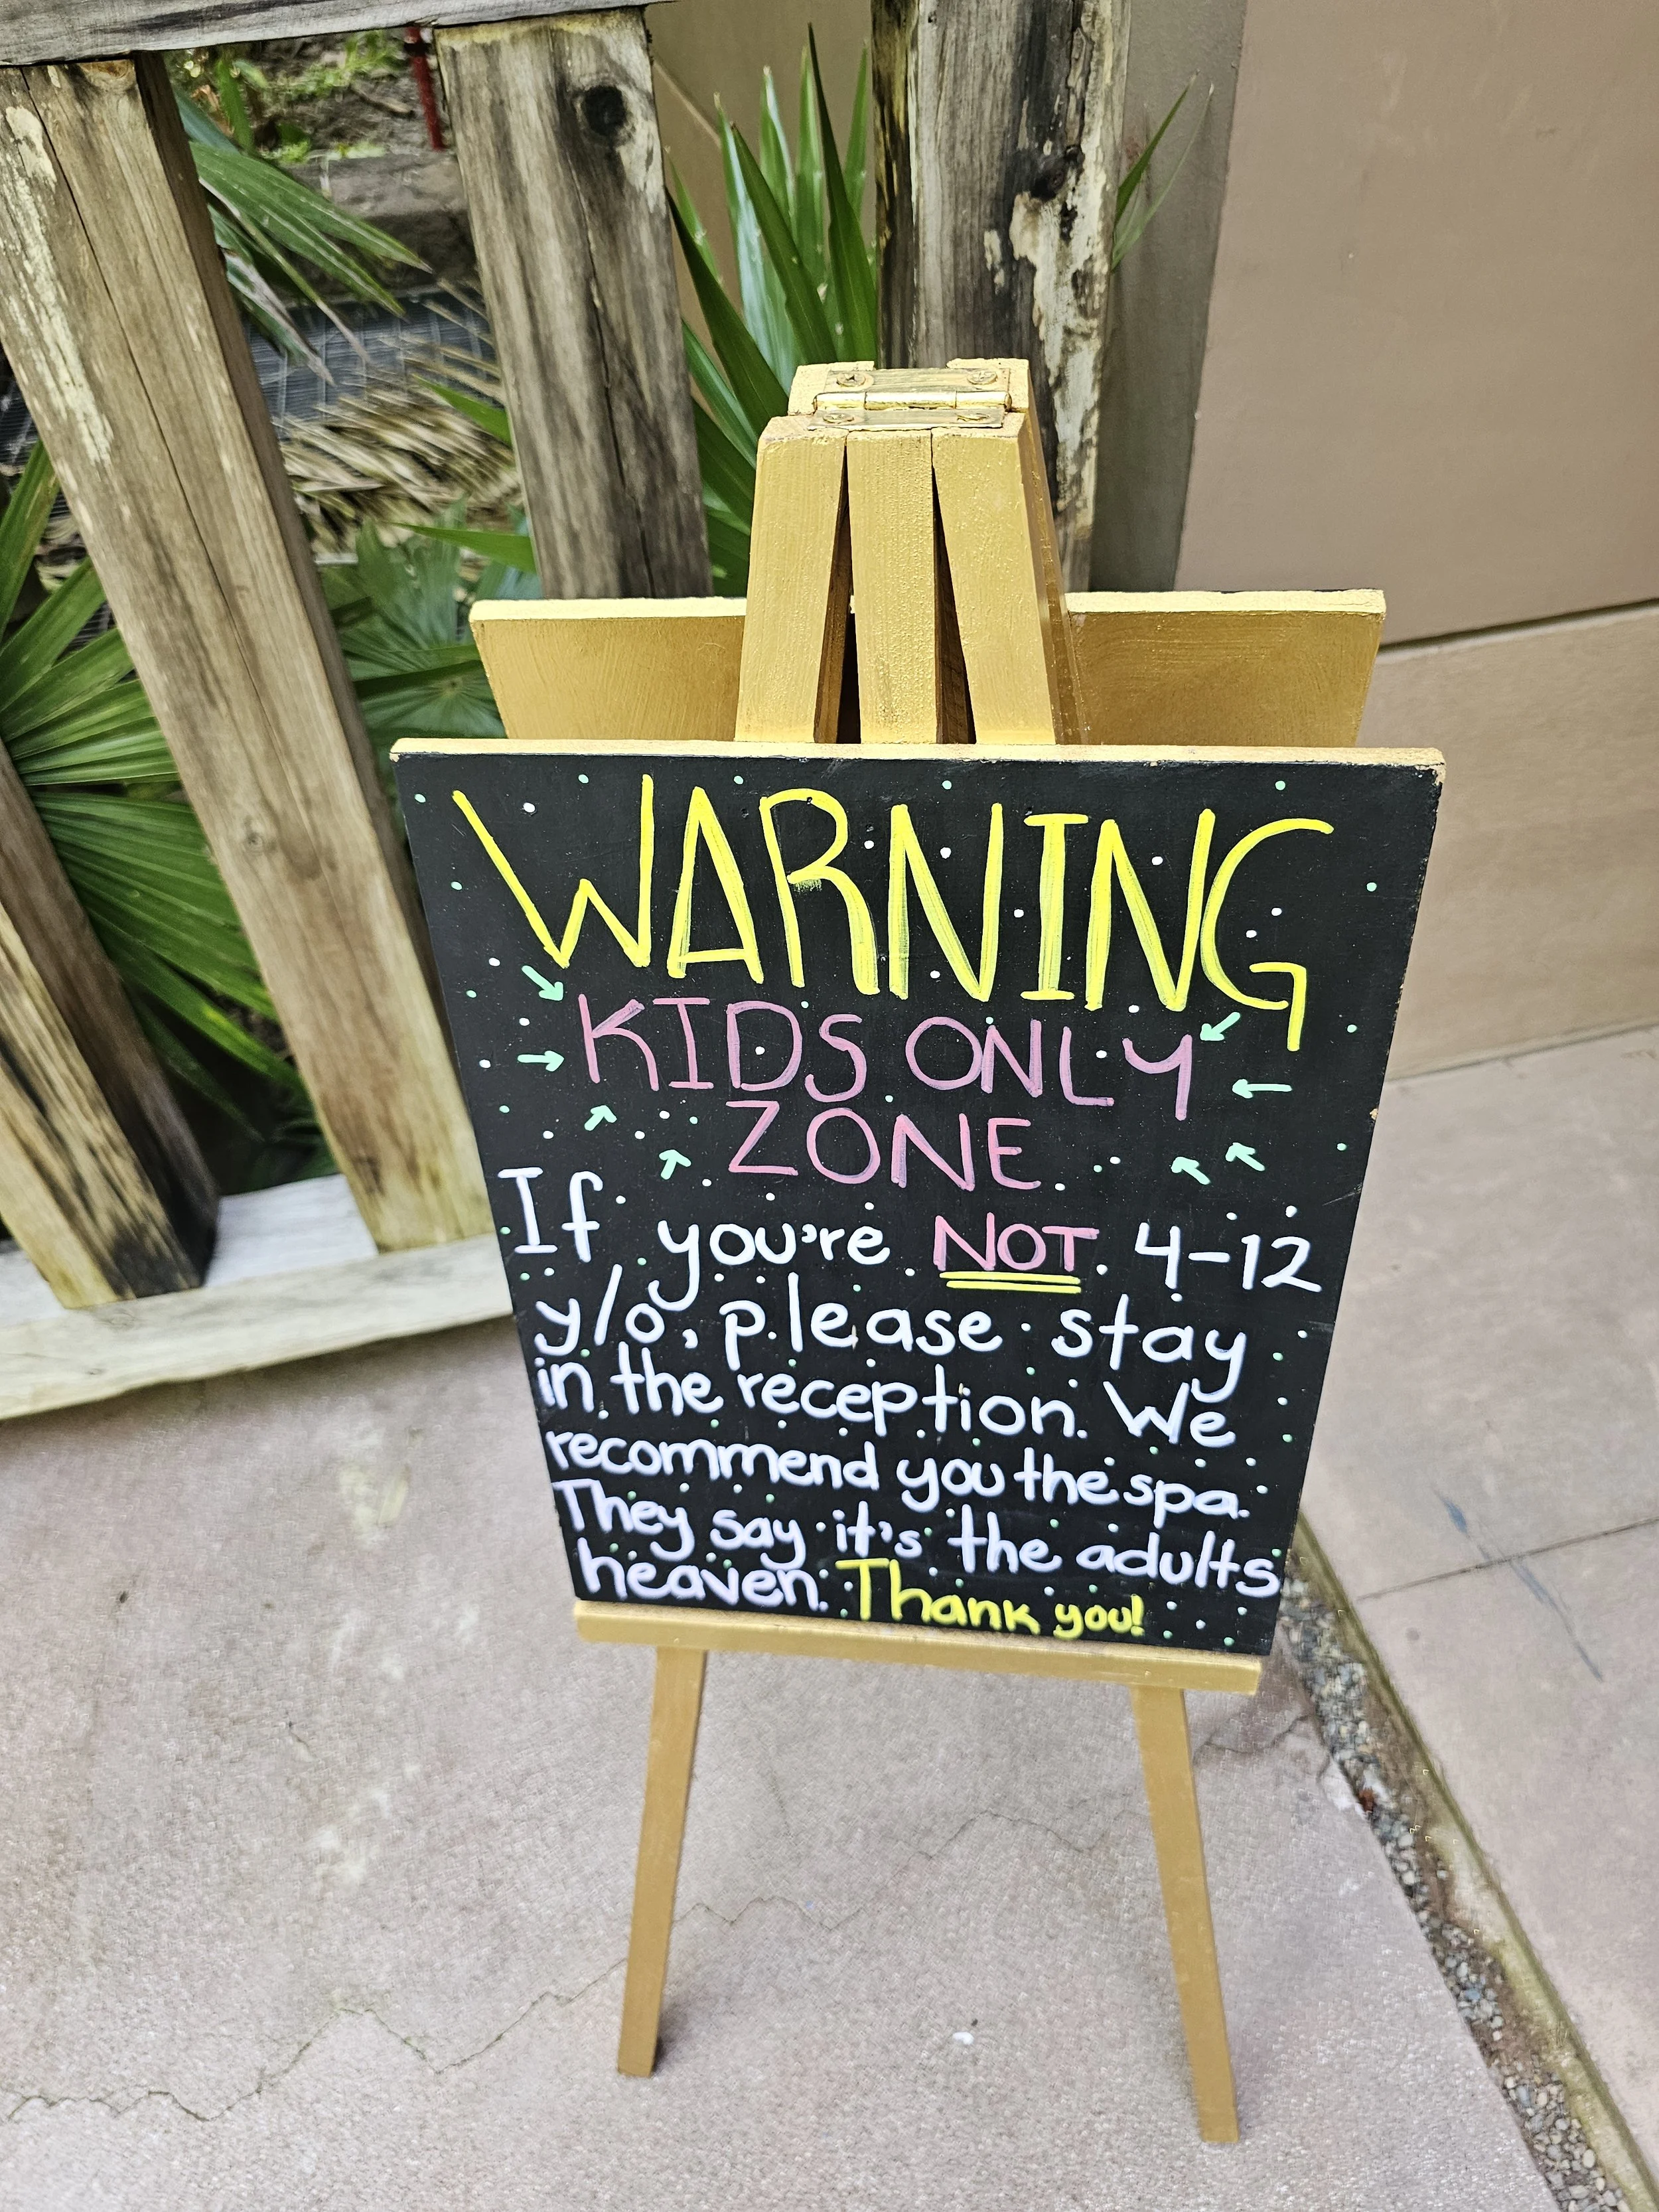 WARNING
KIDS ONLY
ZONE
If you're NOT 4-12
y/o, please stay
in the reception. We
recommend you the spa.
They say it's the adults
heaven. Thank you!